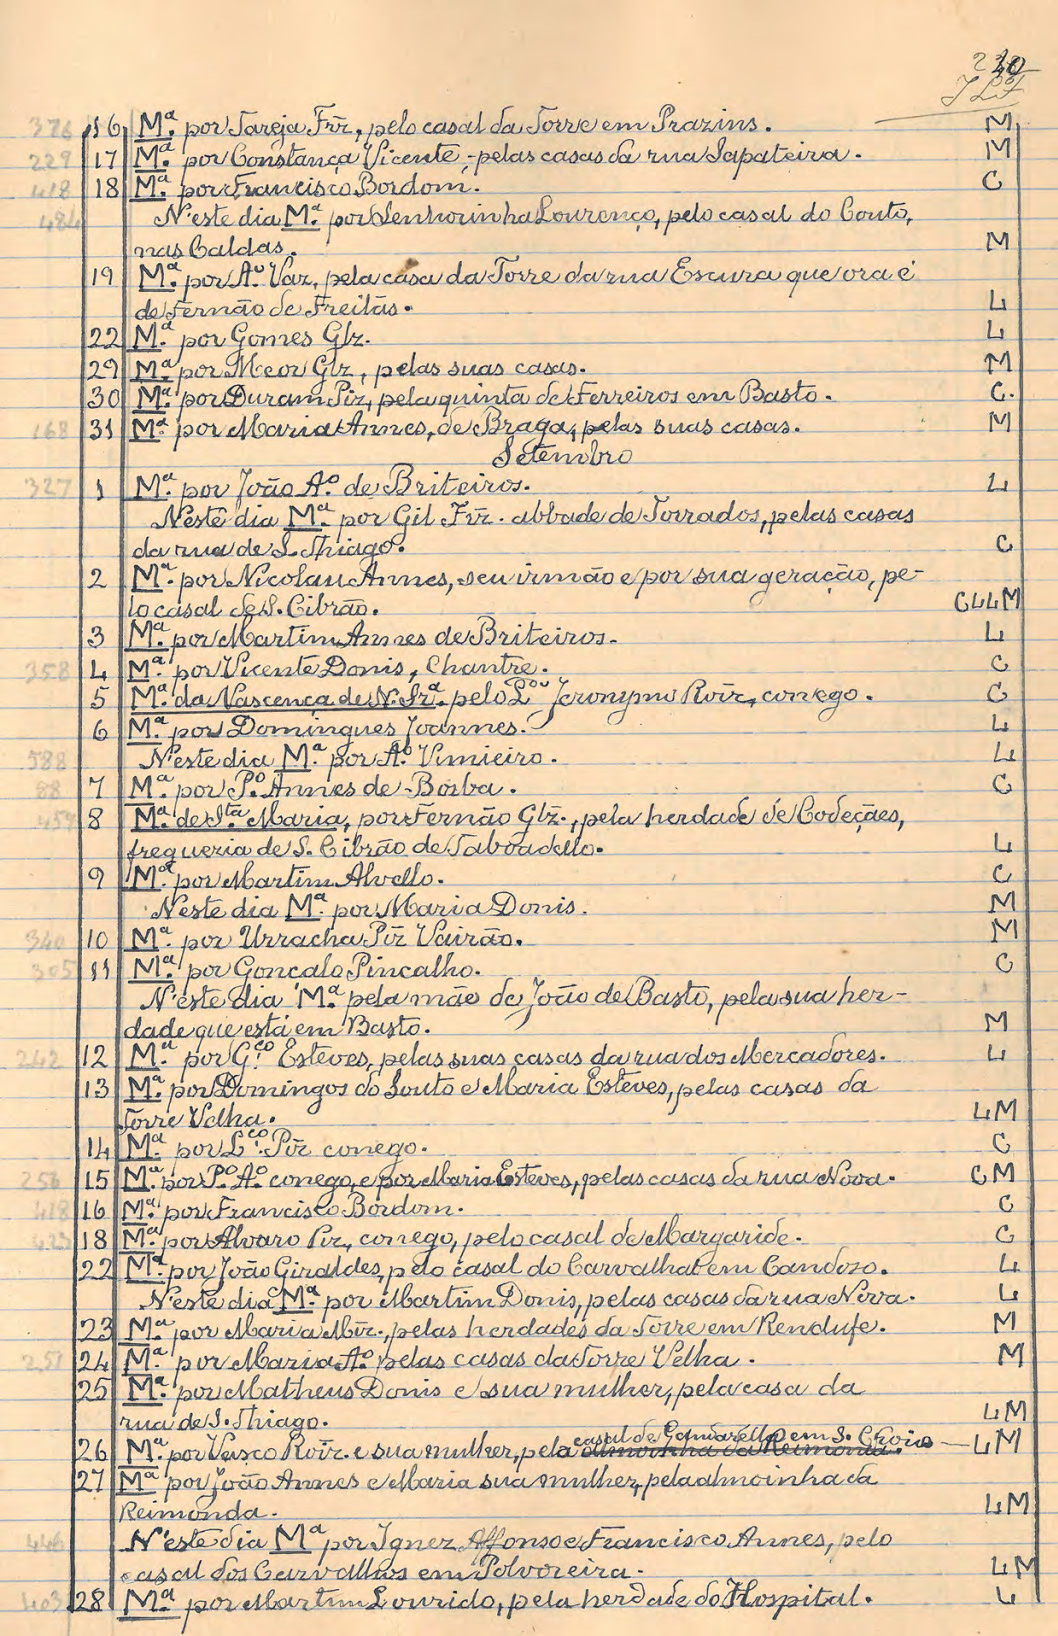 210
376 16 Mª. por Tareja Frz̃, pelo casal da Torre em Prazins. M
229 17 Mª. por Constança Vicente, pelas casas da rua Sapateira. M
418 18 Mª. por Francisco Bordom. C
484 N'este dia Mª. por Senhorinha Lourenço, pelo casal do Couto,
nas Caldas. M
19 Mª. por Aº Vaz, pela casa da Torre da rua Escura que ora é
de Fernão de Freitas. L
22 Mª. por Gomes Glz. L
29 Mª. por Meor Glz, pelas suas casas. M
30 Mª. por Duram Piz, pela quinta de Ferreiros em Basto. C.
168 31 Mª. por Maria Annes, de Braga, pelas suas casas. M
Setembro
327 1 Mª. por João Aº. de Briteiros. L
Néste dia Mª. por Gil Frz̃. abbade de Torrados, pelas casas
da rua de S. Thiago. C
2 Mª. por Nicolau Annes, seu irmão e por sua geração, pe-
lo casal de S. Cibrão. CLLM
3 Mª. por Martim Annes de Briteiros. L
358 4 Mª. por Vicente Donis, Chantre. C
5 Mª. da Nascença de N. Srª. pelo Jeronymo Roiz̃, conego. C
6 Mª. por Domingues Joannes. L
588 N'este dia Mª. por Aº. Vimieiro. L
88 7 Mª. por Pº. Annes de Borba. C
459 8 Mª. de Stª. Maria, por Fernão Glz̃., pela herdade de Codeçães,
fregueria de S. Cibrão de Taboadello. L
9 Mª. por Martim Alvello. C
Neste dia Mª. por Maria Donis. M
340 10 Mª. por Urracha Piz̃ Vairão. M
305 11 Mª. por Goncalo Pincalho. C
N'éste dia Mª. pela mãe de João de Basto, pela sua her-
dade que está em Basto. M
242 12 Mª. por G.ço Esteves, pelas suas casas da rua dos Mercadores. L
13 Mª. por Domingos do Souto e Maria Esteves, pelas casas da
Torre Velha. LM
14 Mª. por L.ço Piz̃ conego. C
256 15 Mª. por Pº. Aº. conego, e por Maria Esteves, pelas casas da rua Nova. CM
418 16 Mª. por Francisco Bordom. C
423 18 Mª. por Alvaro Piz, conego, pelo casal de Margaride. C
22 Mª. por João Giraldes, pelo casal do Carvalhal em Candoso. L
N'este dia Mª. por Martim Donis, pelas casas da rua Nova. L
23 Mª. por Maria Miz̃., pelas herdades da Torre em Rendufe. M
251 24 Mª. por Maria Aº. pelas casas da Torre Velha. M
25 Mª. por Matheus Donis e sua mulher, pela casa da
rua de S. Thiago. LM
casal de Gondarella em S. Cloio
26 Mª. por Vasco Roiz̃. e sua mulher, pela almoinha da Reimonda. — LM
27 Mª. por João Annes e Maria sua mulher, pela almoinha da
Reimonda. LM
446 N'éste dia Mª. por Ignez Affonso e Francisco Annes, pelo
casal dos Carvalhos em Polvoreira. LM
403 28 Mª. por Martim Lourido, pela herdade do Hospital. L